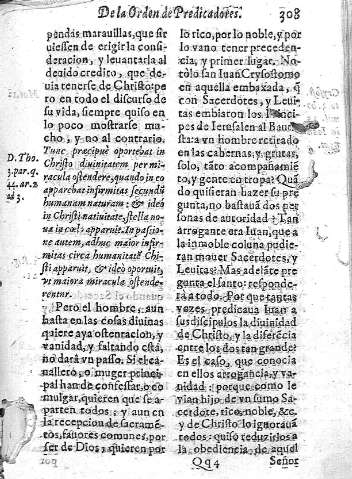 De la Orden de Predicadores.
308
pendas marauillas, que sir
uiessen de erigir la consi-
deracion, y leuantarla al
deuido credito, que de-
uia tenerse de Christo: pe
ro en todo el discurso de
su vida, siempre quiso en
lo poco mostrarse mu-
cho, y no al contrario.
Tunc præcipuè oportebat in
Christo diuinitatem per mi-
racula ostendere, quando in eo
apparebat infirmitas secundū
humanam naturam: & ideò
in Christi natiuitate, stella no-
ua in cœlo apparuit. In passio
ne autem, adhuc maior infir-
mitas circa humanitatē Chri-
sti apparuit, & ideò oportuit,
vt maiora miracula ostende-
rentur.
D. Tho.
3. par. q.
44. ar. 2
ad 3.
Pero el hombre, aun
hasta en las cosas diuinas
quiere aya ostentacion, y
vanidad, y faltando esta,
no dará vn passo. Si el ca-
uallero, o muger princi-
pal han de confessar, o co
mulgar, quieren que se a-
parten todos: y aun en
la recepcion de sacramē-
tos, fauores comunes, por
ser de Dios, quieren por
lo rico, por lo noble, y por
lo vano tener preceden-
cia, y primer lugar. No-
tólo san Iuan Crysostomo
en aquella embaxada, q̃
con Sacerdotes, y Leui-
tas embiaron los Princi-
pes de Ierusalen al Bau-
tista: a vn hombre retirado
en las cabernas, y grutas,
solo, sin acompañamiē-
to, y gente en tropa: Quā
do quisieran hazer su pre
gunta, no bastaua dos per
sonas de autoridad? Tan
arrogante era Iuan, que a
la inmoble coluna pudie-
ran mouer Sacerdotes, y
Leuitas: Mas adelāte pre
gunta el santo: responde-
rá a todo. Por que tantas
vezes predicaua Iuan a
sus discipulos la diuinidad
de Christo, y la diferēcia
entre los dos tan grande?
Es el caso, que conocia
en ellos arrogancia, y va-
nidad: porque como le
vian hijo de vn sumo Sa-
cerdote, rico, noble, &c.
y de Christo lo ignorauā
todos: quiso reduzirlos a
la obediencia, de aquel
Qq4
Señor